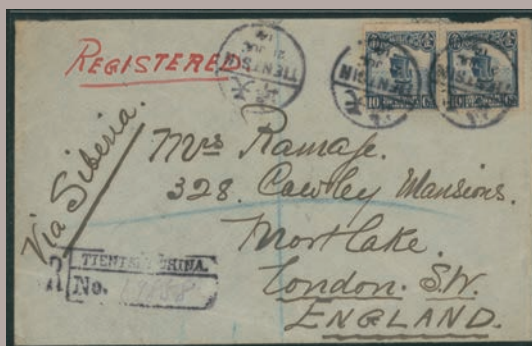 REGISTERED
TIENTSIN
TIENTSIN
TIENTSIN
10
10
Via Siberia.
Mrs Ramage.
328. Cowley Mansions.
Mortlake.
London. S.W.
ENGLAND.
R
TIENTSIN CHINA.
No.